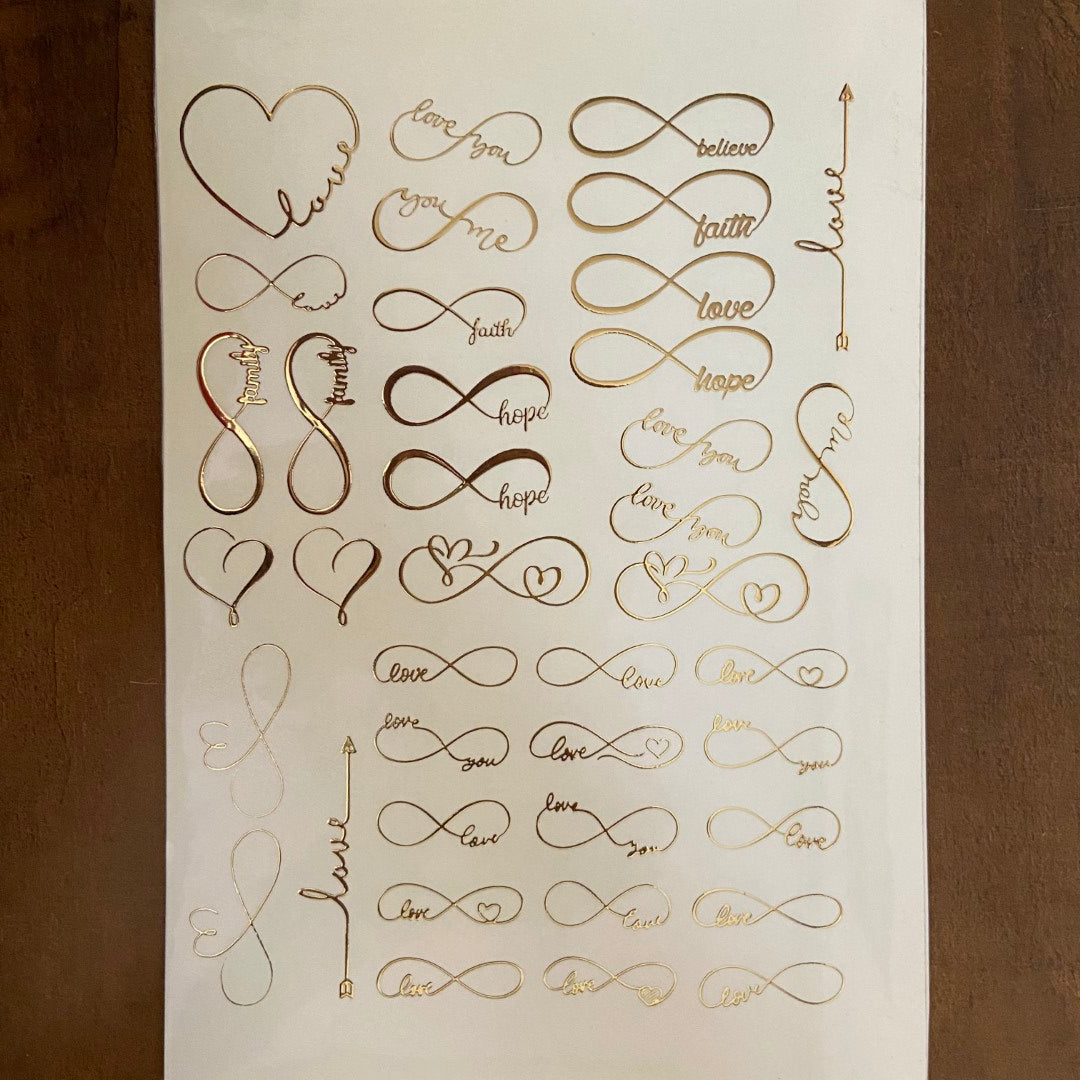 love
love you
you me
believe
faith
love
hope
love
love
faith
family
family
hope
hope
love you
you me
love you
love
love
love
love
you
love
love
you
love
love
love
you
love
love
love
love
love
love
love
love